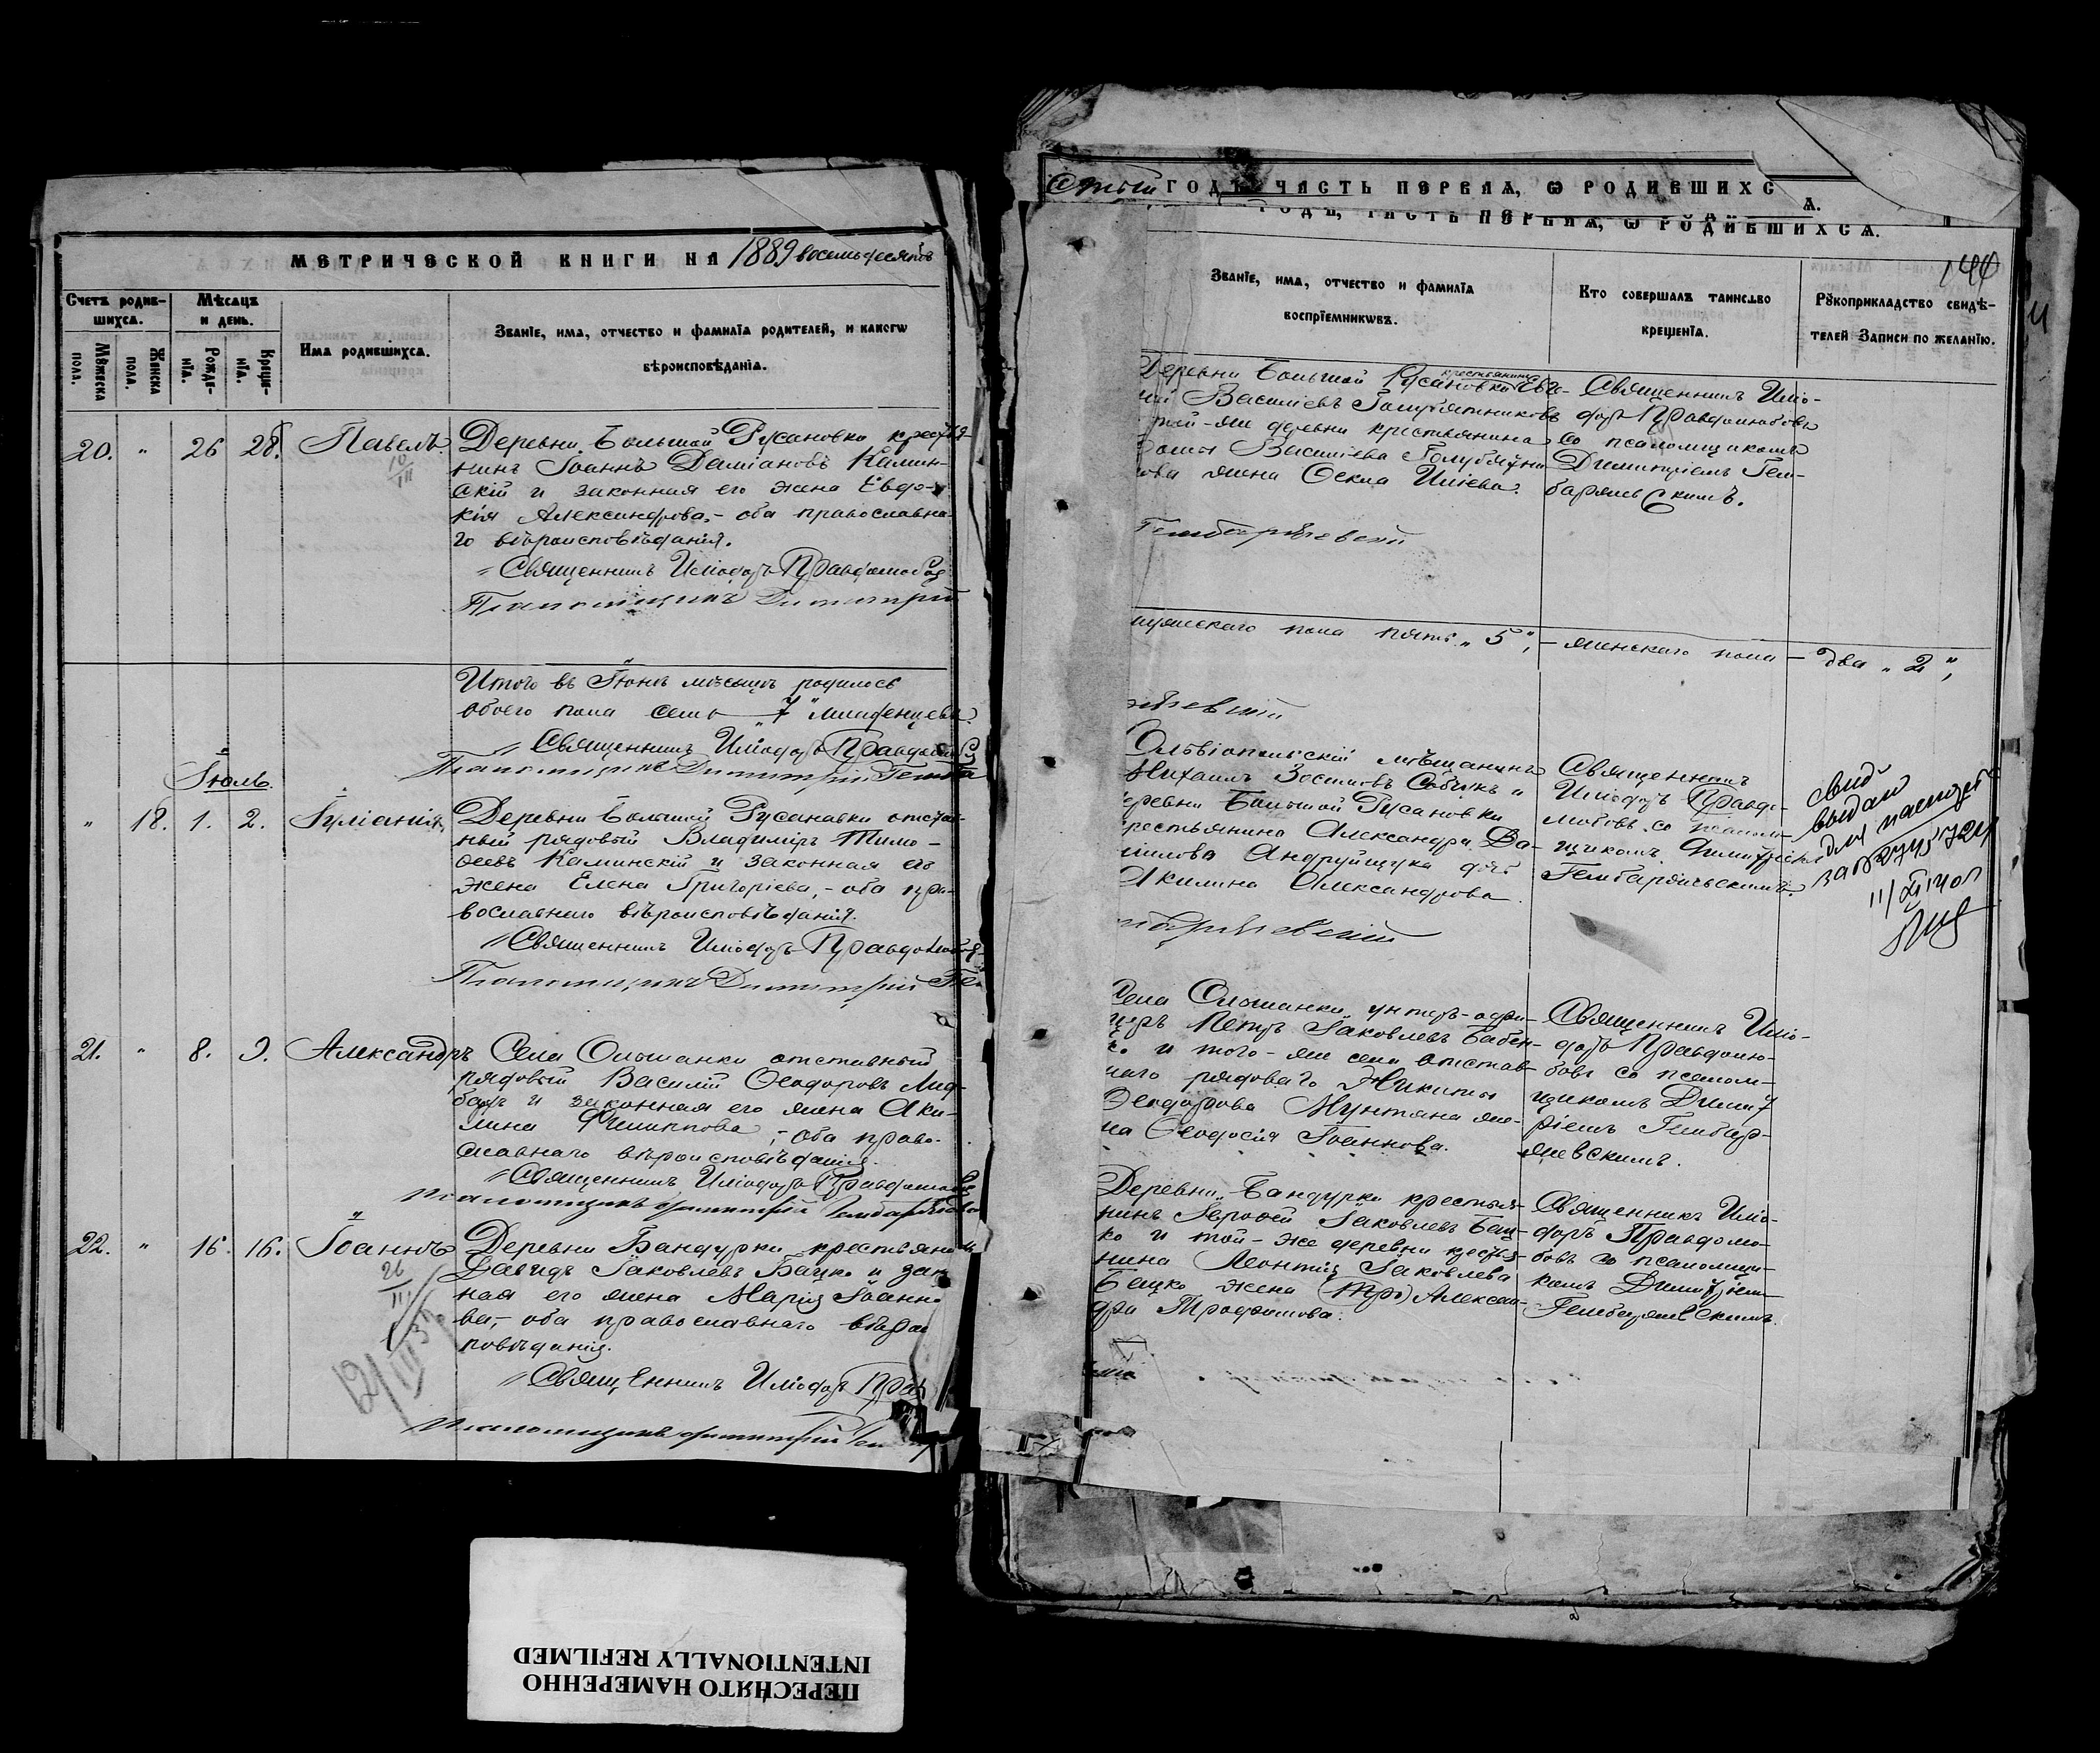 МЕТРИЧЕСКОЙ КНИГИ НА 1889 восемьдесятъ
Счетъ родив-
шихсѧ.
Мѣсѧцъ
и день.
Мꙋжеска
пола.
Женска
пола.
Рожде-
нїѧ.
Креще-
нїѧ.
Имѧ родившихсѧ.
Званїе, имѧ, отчество и фамилїѧ родителей, и какогѡ
вѣроисповѣданїѧ.
20. " 26 28. Павелъ.
10/III
Деревни Большой Русановки крестья-
нинъ Іоаннъ Даміановъ Камин-
скій и законная его жена Евдо-
кія Александрова,- оба православна-
го вѣроисповѣданія.
Священникъ Иліодоръ Правдолюбов
Псаломщикъ Димитрій
Итого въ Іюнѣ мѣсяцѣ родилось
обоего пола семь "7" младенцевъ.
Священникъ Иліодоръ Правдолюбо
Псаломщикъ Димитрій Гемба
Іюль.
" 18. 1. 2. Іуліанія,
Деревни Большой Русановки отстав-
ный рядовой Владиміръ Тимо-
ѳеевъ Каминскій и законная его
жена Елена Григоріева,- оба пра-
вославнаго вѣроисповѣданія.
Священникъ Иліодоръ Правдолюбов
Псаломщикъ Димитрій Ге
21. " 8. 9. Александръ
Села Ольшанки отставный
рядовой Василій Ѳеодоровъ
и законная его жена Аки-
лина Филиппова,- оба право-
славнаго вѣроисповѣданія.
Священникъ Иліодоръ Правдолюбов
Псаломщикъ Димитрій Гембаржевс
22. " 16. 16. Іоаннъ
26/III
12/III 31
Деревни Бандурки крестьянинъ
Давидъ Іаковлевъ Бацко и закон
ная его жена Марія Іоанно
ва,- оба православнаго вѣрои
повѣданія.
Священникъ Иліодоръ Прав
Псаломщикъ Димитрій Гем
Стый ГОДЪ, ЧАСТЬ ПЕРВАѦ, Ѡ РОДИВШИХС
Ѧ.
ГОДЪ, ЧАСТЬ ПЕРВАѦ, Ѡ РОДИВШИХСѦ.
144
Званїе, имѧ, отчество и фамилїѧ
воспрїемникѡвъ.
Кто совершалъ таинство
крещенїѧ.
Рꙋкоприкладство свидѣ-
телей записи по желанїю.
Деревни Большой Русановки крестьянинъ Евге-
ній Васильевъ Голубятниковъ
той-же деревни крестьянина
Василіева Голубятни
ова жена Ѳекла Иліева.
Священникъ Иліо-
доръ Правдолюбовъ
со псаломщикомъ
Димитріемъ Гем-
баржевскимъ.
Гембаржевскій
мужескаго пола пять "5",- женскаго пола - два "2",
жевскій
Ольвіопольскій мѣщанинъ
Михаилъ Собчукъ и
деревни Большой Русановки
крестьянина Александра Да-
нилова Андрейчука дочь
Акилина Александрова.
Священникъ
Иліодоръ Правдо-
любовъ со псалом-
щикомъ Димитріемъ
Гембаржевскимъ.
свид
выдан
для
за № 724
11/XI 1901
мбаржевскій
Села Ольшанки унтеръ-офи-
церъ Петръ Іаковлевъ Бабен-
ко и того-же села отстав-
наго рядоваго Никиты
Ѳеодорова Мунтяна же-
на Ѳеодосія Іоаннова.
Священникъ Иліо-
доръ Правдолю-
бовъ со псалом-
щикомъ Димит
ріемъ Гембар-
жевскимъ.
Деревни Бандурки крестья-
нинъ Іероѳей Іаковлевъ Бац-
ко и той-же деревни крестья-
нина Леонтія Іаковлева
Бацко жена (Тро) Алексан-
дра Трофимова.
Священникъ Иліо-
доръ Правдолю-
бовъ со псаломщи-
комъ Димитріем
Гембаржевскимъ.
ПЕРЕСНЯТО НАМЕРЕННО
INTENTIONALLY REFILMED